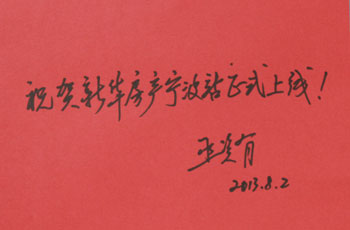 祝贺新华房产宁波站正式上线!
王资有
2013.8.2